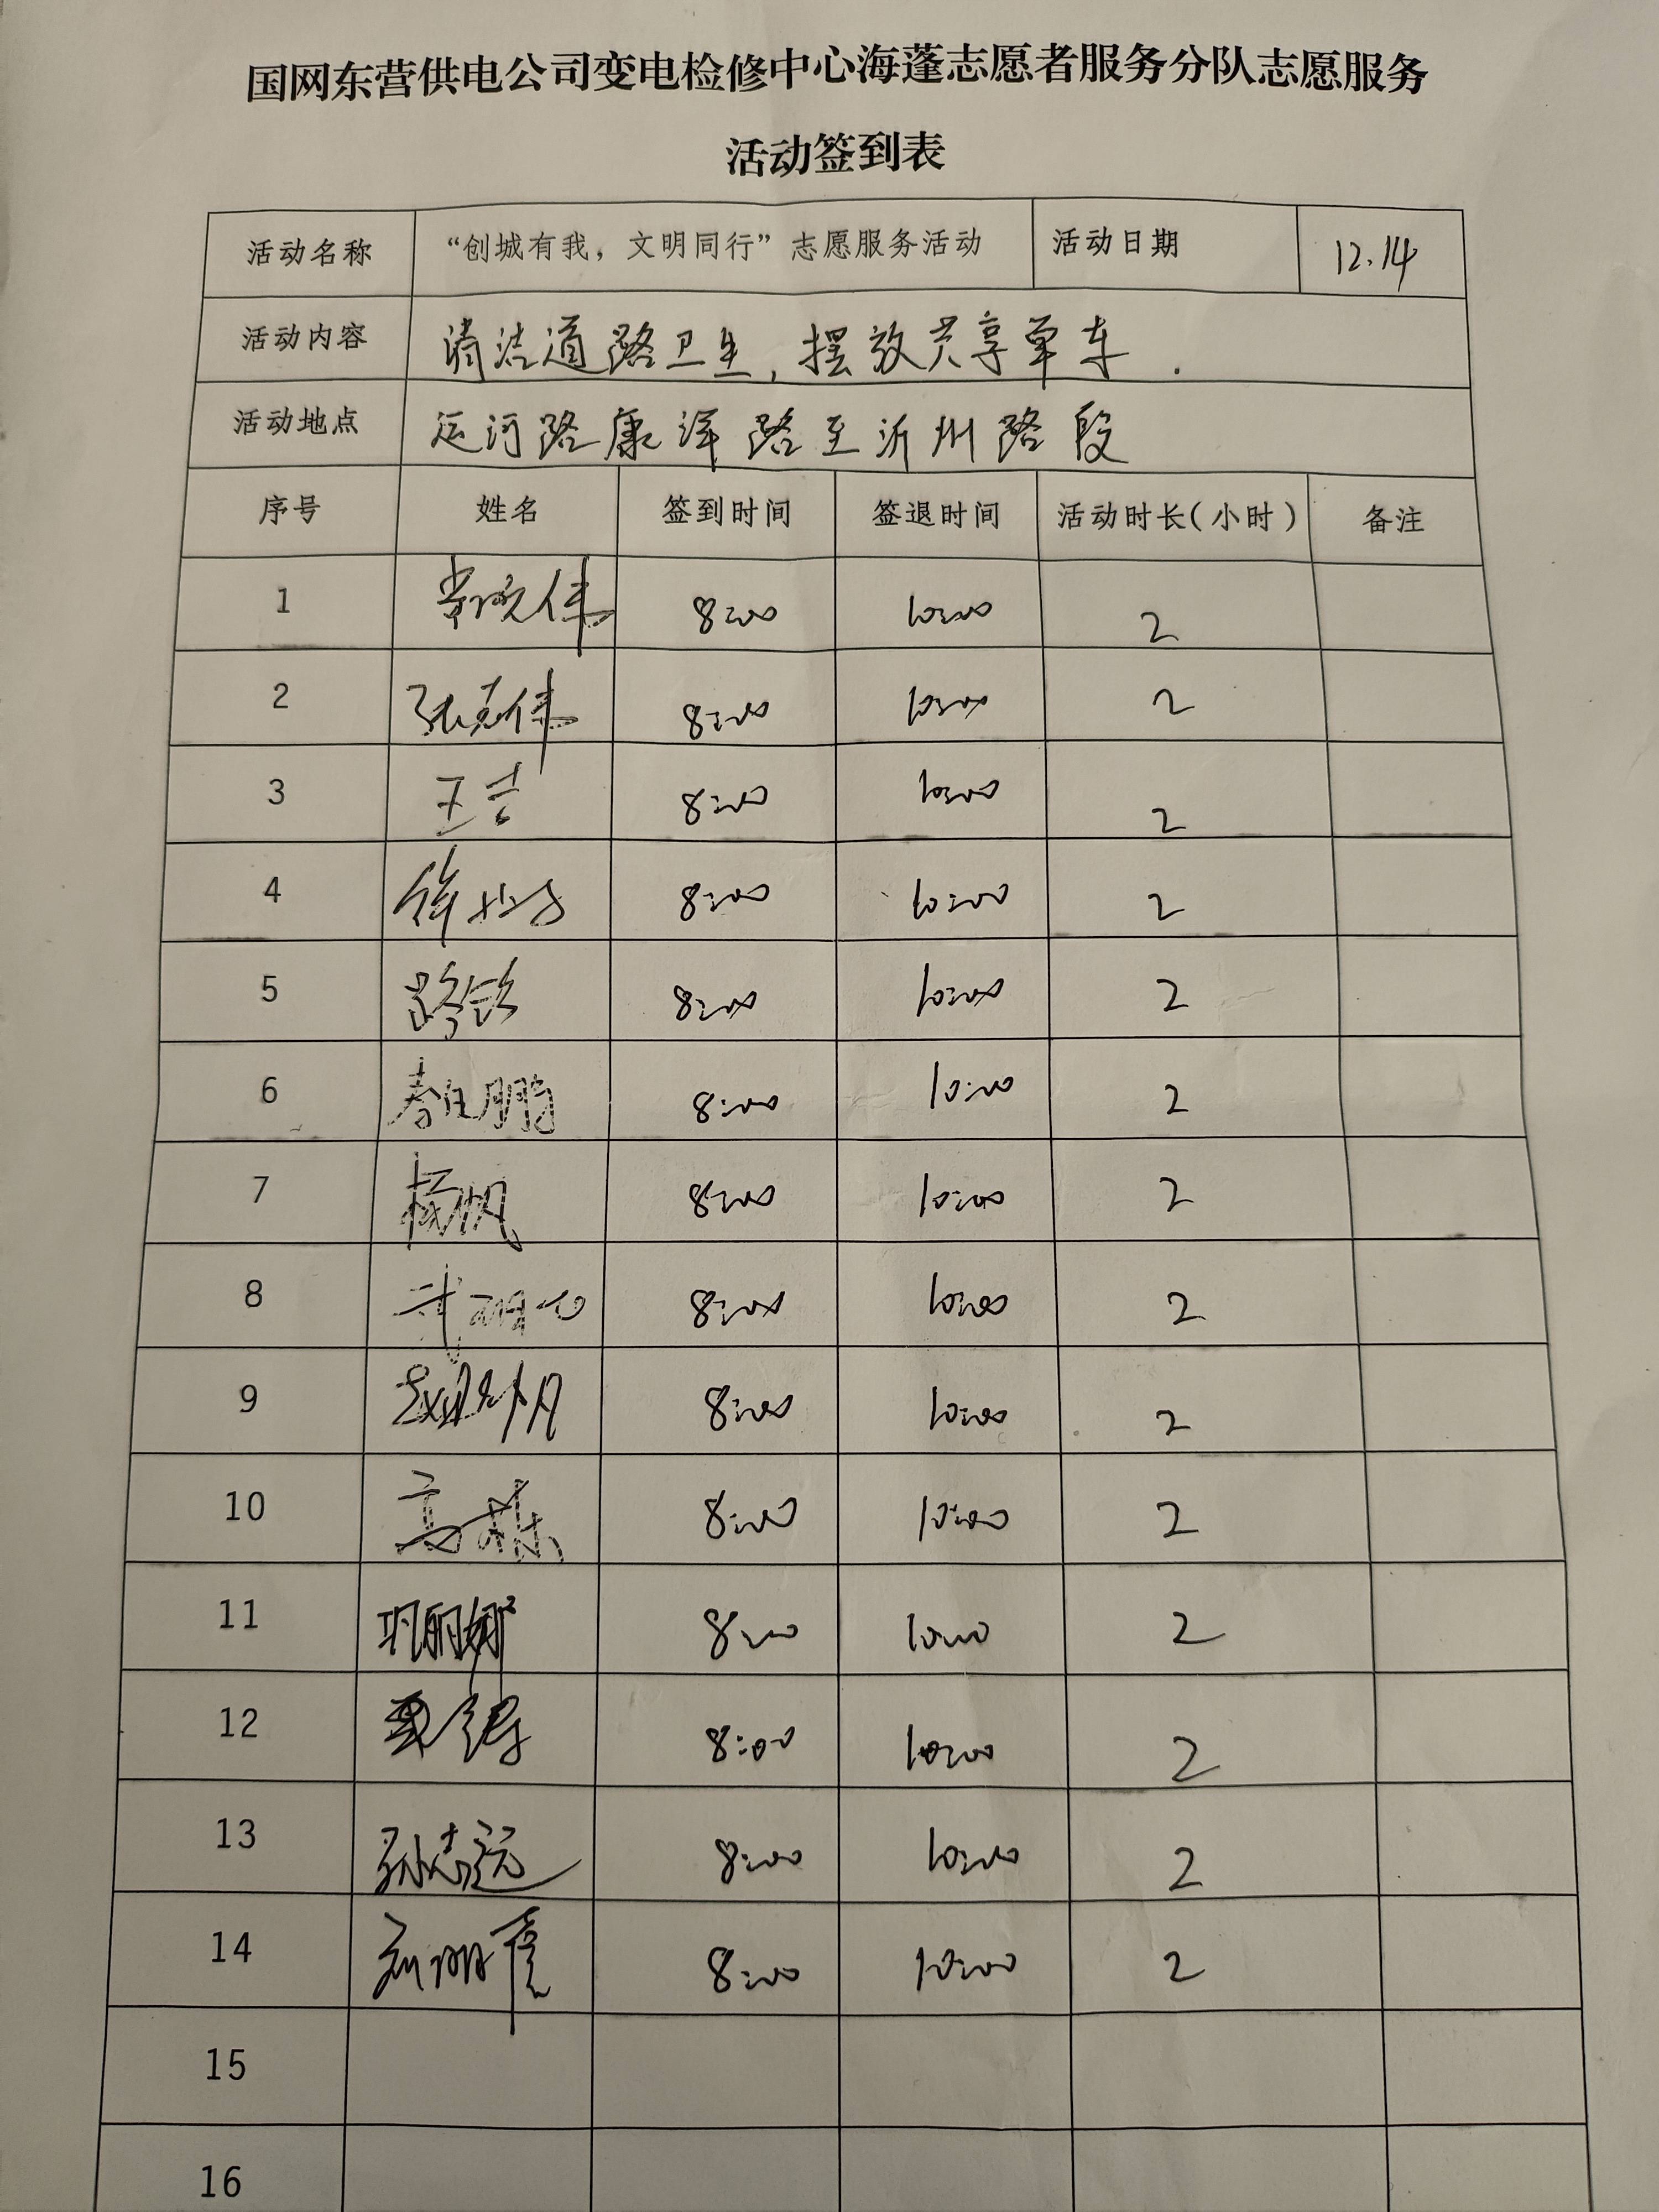 国网东营供电公司变电检修中心海蓬志愿者服务分队志愿服务
活动签到表
活动名称 “创城有我，文明同行”志愿服务活动 活动日期 12.14
活动内容 清洁道路卫生，摆放共享单车.
活动地点 运河路康洋路至沂州路段
序号 姓名 签到时间 签退时间 活动时长(小时) 备注
1 常晓伟 8:00 10:00 2
2 张克伟 8:00 10:00 2
3 王吉 8:00 10:00 2
4 徐 8:00 10:00 2
5 路 8:00 10:00 2
6 鹏 8:00 10:00 2
7 杨帆 8:00 10:00 2
8 8:00 10:00 2
9 8:00 10:00 2
10 高栋 8:00 10:00 2
11 巩丽娜 8:00 10:00 2
12 8:00 10:00 2
13 孙志远 8:00 10:00 2
14 8:00 10:00 2
15
16